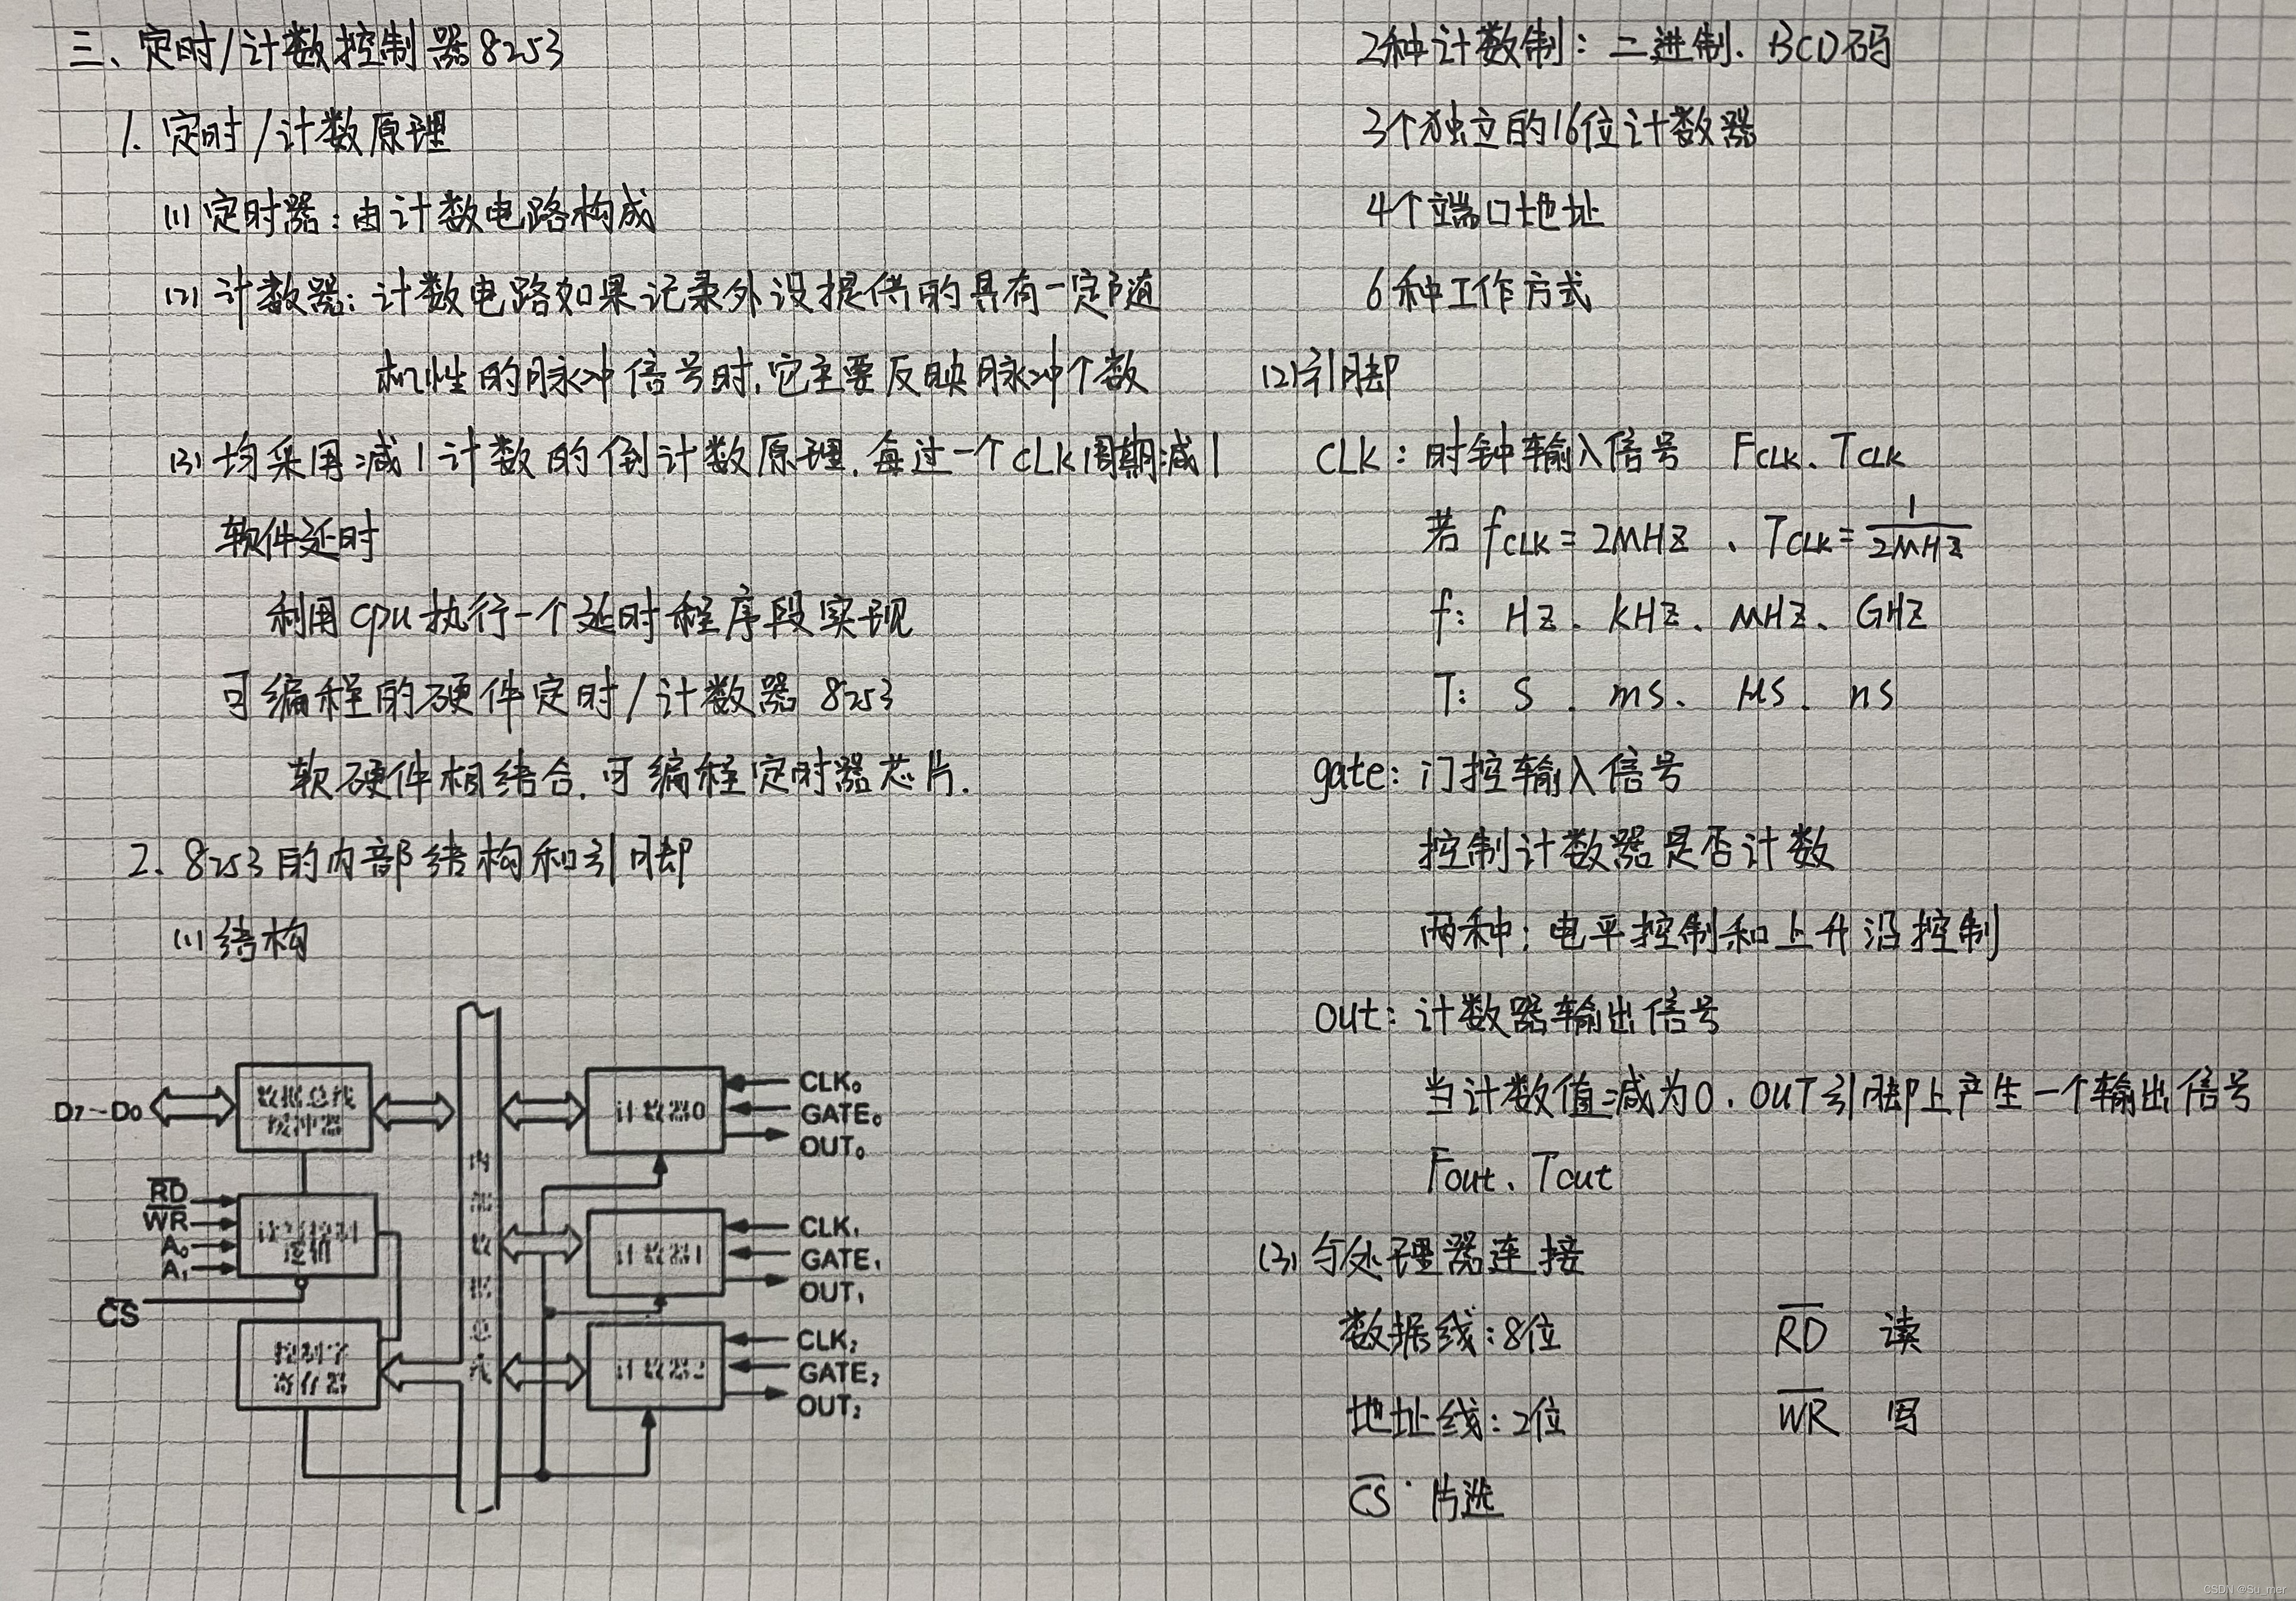 三、定时/计数控制器8253
1. 定时/计数原理
(1) 定时器：由计数电路构成
(2) 计数器：计数电路如果记录外设提供的具有一定随
机性的脉冲信号时，它主要反映脉冲个数
(3) 均采用减1计数的倒计数原理，每过一个CLK周期减1
软件延时
利用cpu执行一个延时程序段实现
可编程的硬件定时/计数器 8253
软硬件相结合，可编程定时器芯片.
2. 8253的内部结构和引脚
(1) 结构
D7~D0
数据总线
缓冲器
R̅D̅
W̅R̅
A₀
A₁
读/写控制
逻辑
C̅S̅
控制字
寄存器
内部数据总线
计数器0
CLK₀
GATE₀
OUT₀
计数器1
CLK₁
GATE₁
OUT₁
计数器2
CLK₂
GATE₂
OUT₂
2种计数制：二进制、BCD码
3个独立的16位计数器
4个端口地址
6种工作方式
(2) 引脚
CLK：时钟输入信号 FCLK、TCLK
若 fCLK = 2MHZ 、TCLK = 1/2MHZ
f： HZ、KHZ、MHZ、GHZ
T： S、ms、μs、ns
gate：门控输入信号
控制计数器是否计数
两种：电平控制和上升沿控制
out：计数器输出信号
当计数值减为0，OUT引脚上产生一个输出信号
Fout、Tout
(3) 与处理器连接
数据线：8位 R̅D̅ 读
地址线：2位 W̅R̅ 写
C̅S̅ 片选
CSDN @Su_mer